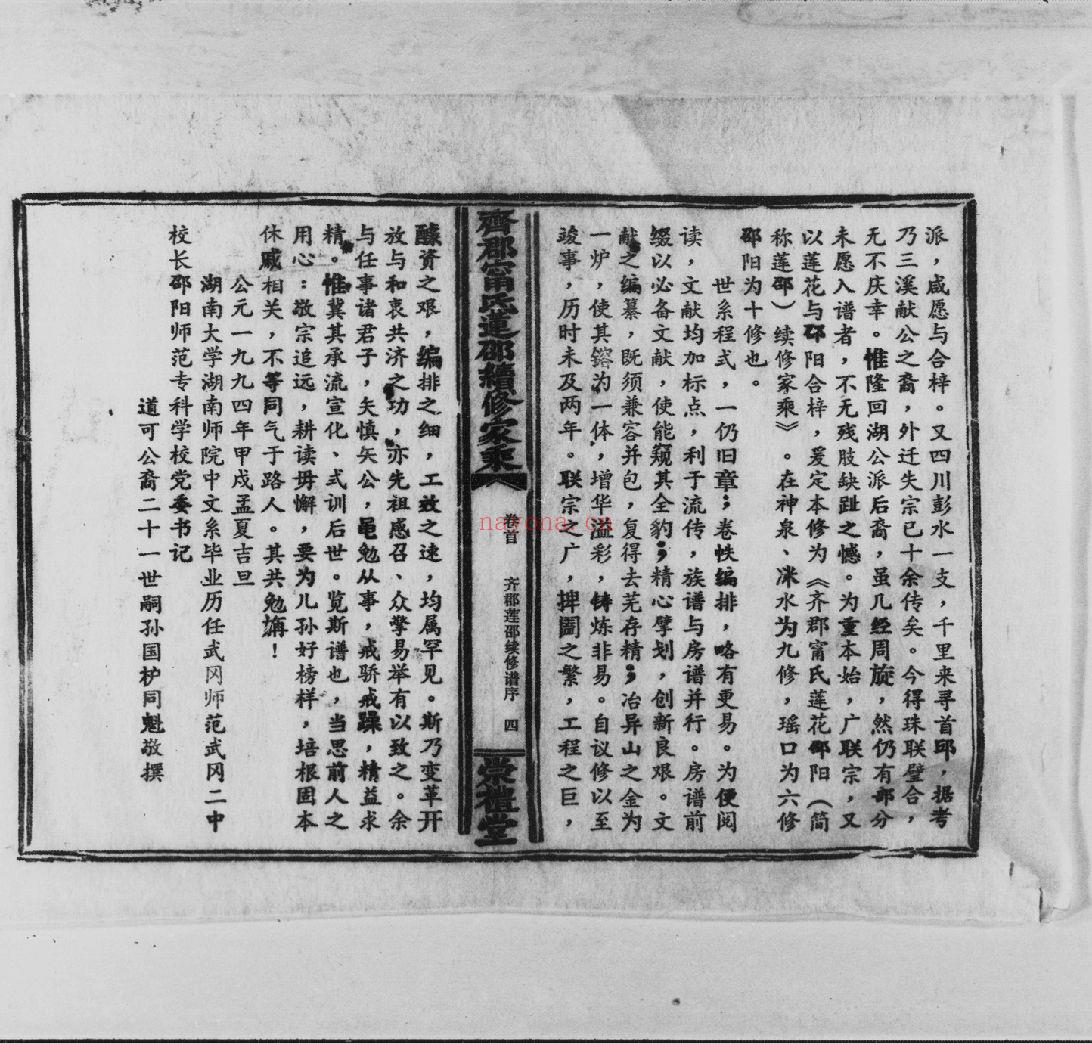 派，咸愿与合梓。又四川彭水一支，千里来寻首邱，据考
乃三溪献公之裔，外迁失宗已十余传矣。今得珠联璧合，
无不庆幸。惟隆回湖公派后裔，虽几经周旋，然仍有部分
未愿入谱者，不无残肢缺趾之憾。为重本始，广联宗，又
以莲花与邵阳合梓，爰定本修为《齐郡甯氏莲花邵阳（简
称莲邵）续修家乘》。在神泉、渁水为九修，瑶口为六修
邵阳为十修也。
世系程式，一仍旧章；卷帙编排，略有更易。为便阅
读，文献均加标点，利于流传，族谱与房谱并行。房谱前
缀以必备文献，使能窥其全豹；精心擘划，创新良艰。文
献之编纂，既须兼容并包，复得去芜存精；冶异山之金为
一炉，使其镕为一体，增华溢彩，铸炼非易。自议修以至
竣事，历时未及两年。联宗之广，捭阖之繁，工程之巨，
齊郡甯氏蓮邵續修家乘
卷首 齐郡莲邵续修谱序 四
崇禮堂
醵资之艰，编排之细，工效之速，均属罕见。斯乃变革开
放与和衷共济之功，亦先祖感召、众擎易举有以致之。余
与任事诸君子，矢慎矢公，黾勉从事，戒骄戒躁，精益求
精。惟冀其承流宣化、式训后世。览斯谱也，当思前人之
用心：敬宗追远，耕读毋懈，要为儿孙好榜样，培根固本
休戚相关，不等同气于路人。其共勉旃！
公元一九九四年甲戌孟夏吉旦
湖南大学湖南师院中文系毕业历任武冈师范武冈二中
校长邵阳师范专科学校党委书记
道可公裔二十一世嗣孙国栌同魁敬撰
nayona.cn